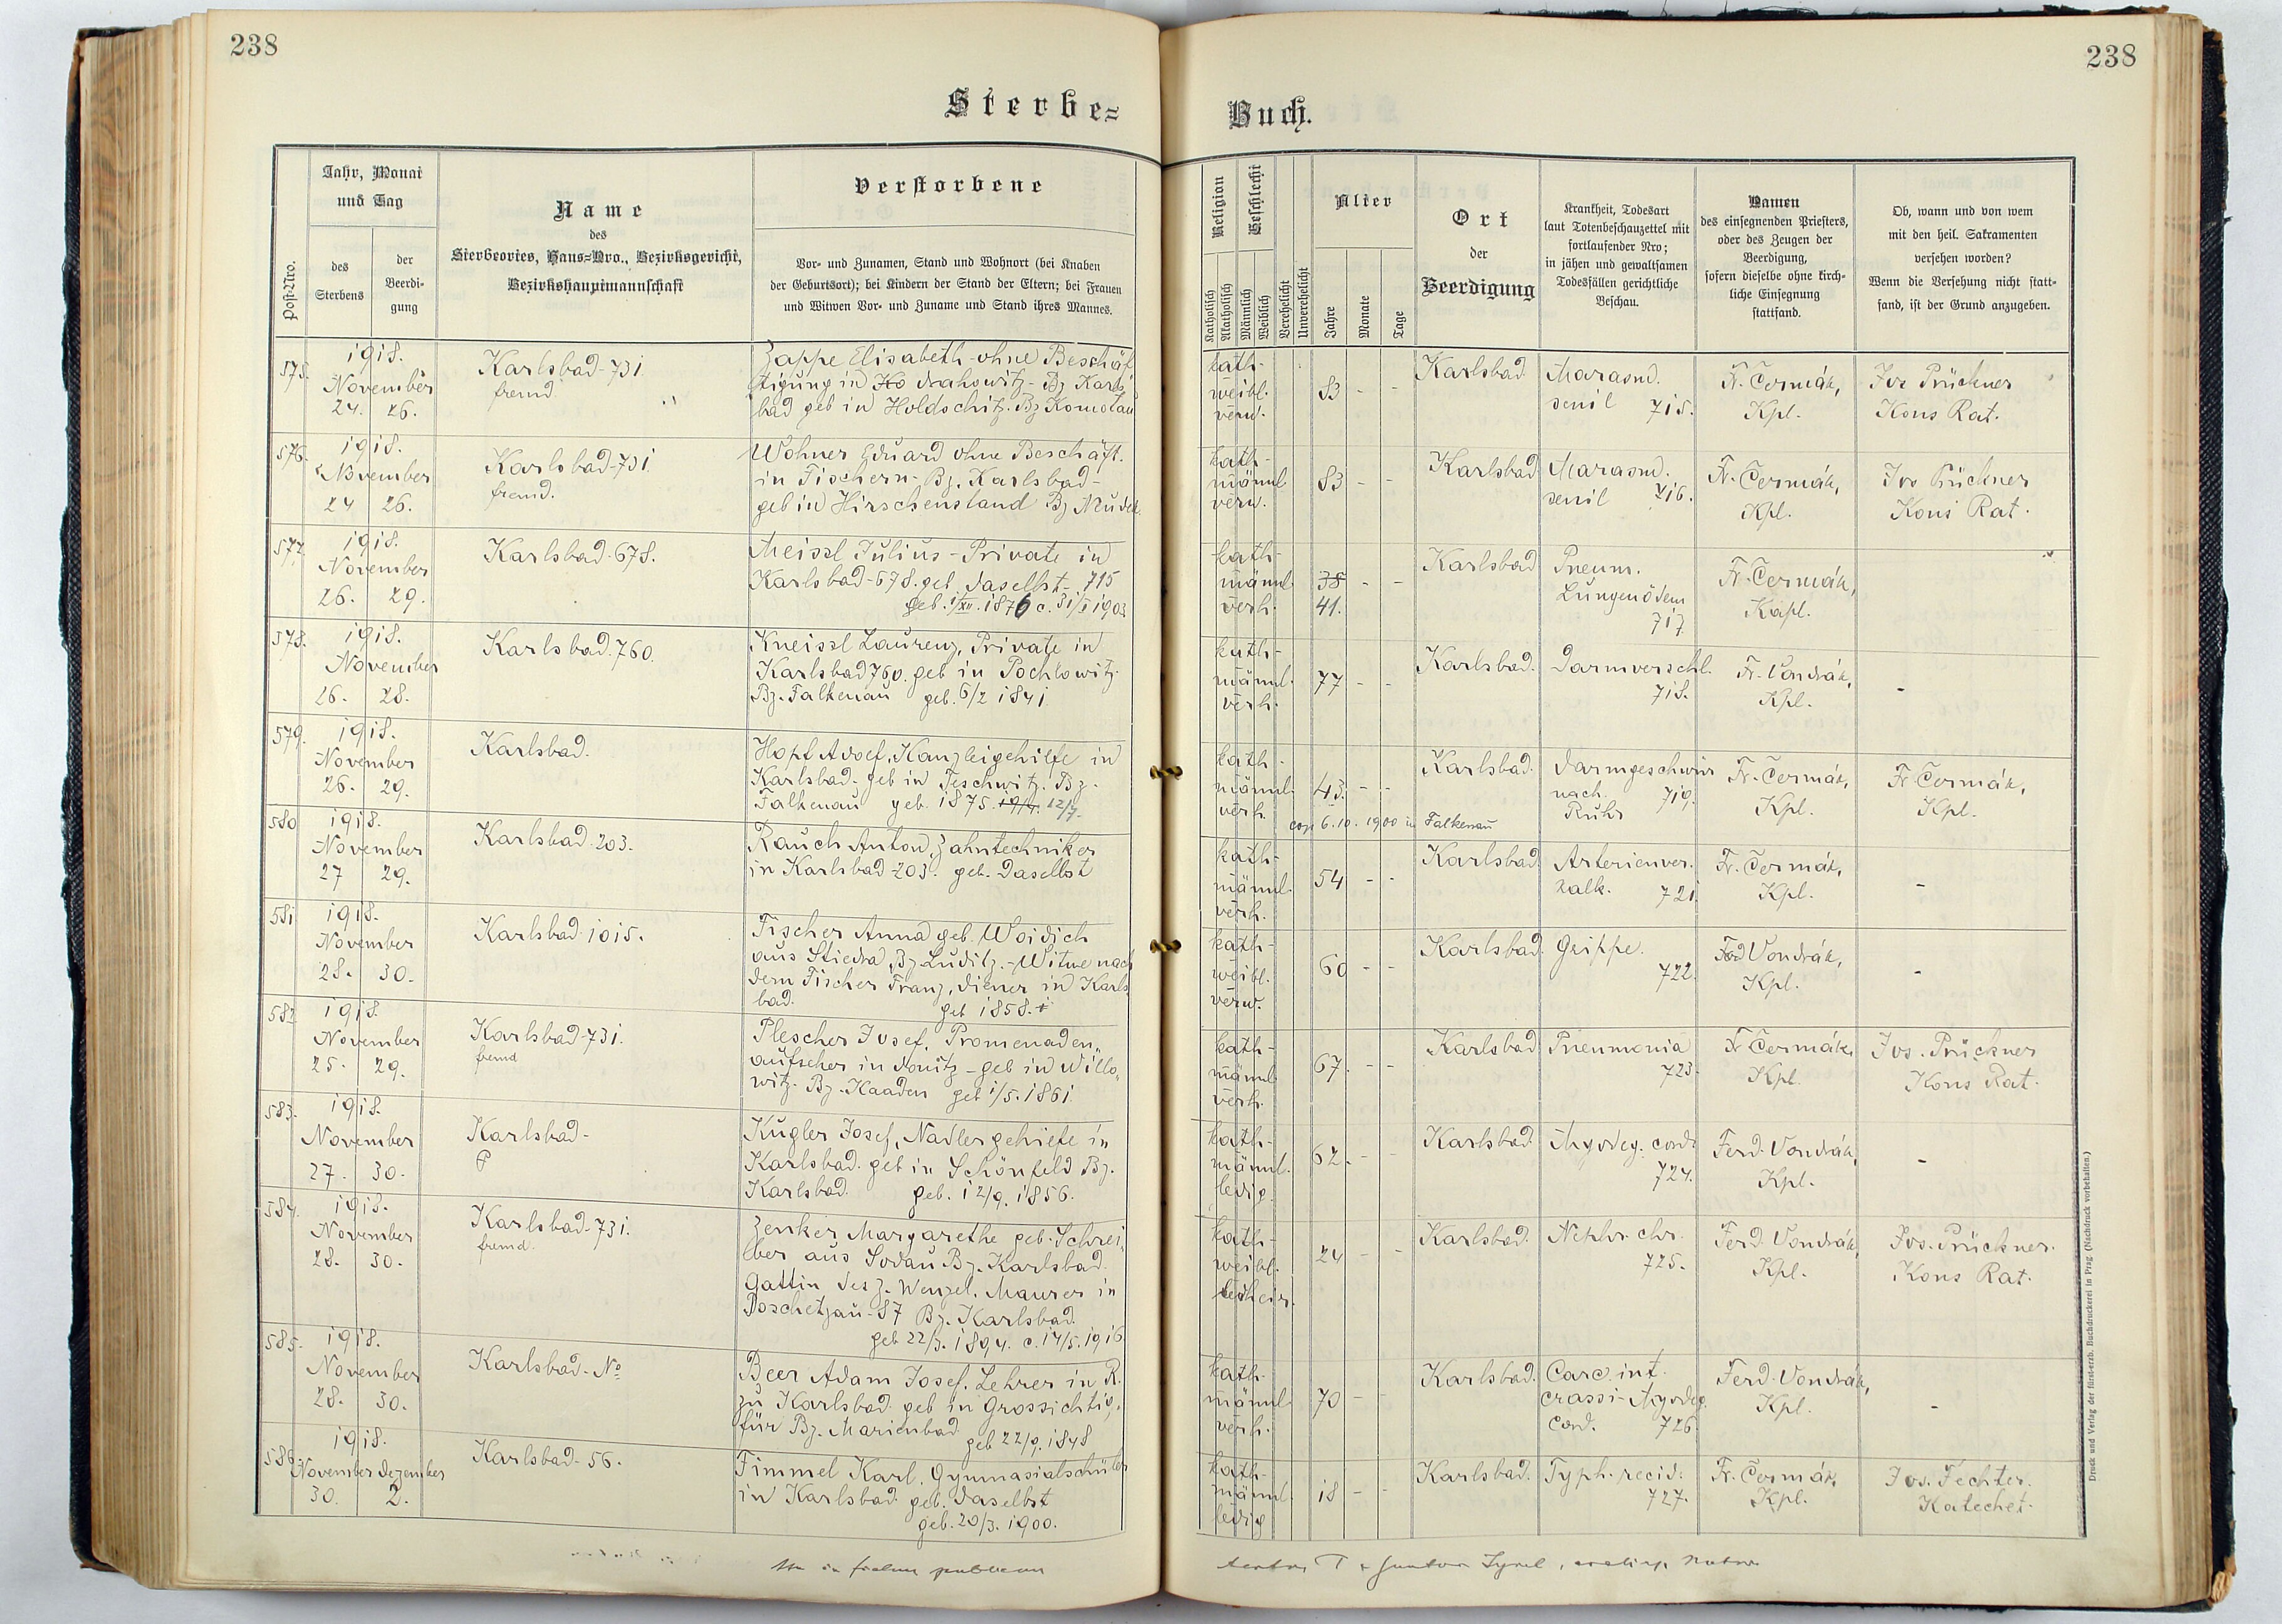 238
238
Sterbe=
Buch.
Post-Nro.
Jahr, Monat
und Tag
des
Sterbens
der
Beerdi-
gung
Name
des
Sterbeortes, Haus=Nro., Bezirksgericht,
Bezirkshauptmannschaft
Verstorbene
Vor- und Zunamen, Stand und Wohnort (bei Knaben
der Geburtsort); bei Kindern der Stand der Eltern; bei Frauen
und Witwen Vor- und Zuname und Stand ihres Mannes.
Religion
Geschlecht
Katholisch
Akatholisch
Männlich
Weiblich
Verehelicht
Unverehelicht
Alter
Jahre
Monate
Tage
Ort
der
Beerdigung
Krankheit, Todesart
laut Totenbeschauzettel mit
fortlaufender Nro;
in jähen und gewaltsamen
Todesfällen gerichtliche
Beschau.
Namen
des einsegnenden Priesters,
oder des Zeugen der
Beerdigung,
sofern dieselbe ohne kirch-
liche Einsegnung
stattfand.
Ob, wann und von wem
mit den heil. Sakramenten
versehen worden?
Wenn die Versehung nicht statt-
fand, ist der Grund anzugeben.
575.
1918.
November
24. 26.
Karlsbad-731
fremd
Zappe Elisabeth-ohne Beschäf
tigung in Ko drahowitz-Bz Karls
bad geb in Holdschitz. Bz Komotau
kath-
weibl.
verw.
83 - -
Karlsbad
Marasm.
senil 715.
Fr. Čermák,
Kpl.
Jos Prückner
Kons Rat.
576.
1918.
November
24 26.
Karlsbad-731.
fremd.
Wohner Eduard ohne Beschäft.
in Fischern-Bz. Karlsbad-
geb in Hirschenstand Bz Neudek
kath-
männl
verw.
83 - -
Karlsbad
Marasm.
senil 716.
Fr. Čermák,
Kpl.
Jos Prückner
Kons Rat.
577.
1918.
November
26. 29.
Karlsbad-678.
Meissl Julius-Private in
Karlsbad-678. geb daselbst- 715
geb. 1/XII. 1876 c. 31/I 1903
kath-
männl.
verh.
38 - -
41.
Karlsbad
Pneum.
Lungenödem
717
Fr. Čermák,
Kapl.
578.
1918.
November
26. 28.
Karlsbad.760.
Kneissl Laurenz, Private in
Karlsbad 760. geb in Pochlowitz
Bz. Falkenau geb. 6/2 1841
kath-
männl.
verh.
77 - -
Karlsbad.
Darmverschl.
718.
Fr. Vondrák,
Kpl.
-
579.
1918.
November
26. 29.
Karlsbad.
Hopf Adolf, Kanzleigehilfe in
Karlsbad- geb in Teschwitz. Bz.
Falkenau geb. 1875. 12/7.
kath-
männl.
verh.
43. - -
cop 6.10. 1900 in Falkenau
Karlsbad.
Darmgeschwür
nach. 719.
Ruhr
Fr. Čermák,
Kpl.
Fr Čermák,
Kpl.
580
1918.
November
27 29.
Karlsbad.203.
Rauch Anton, Zahntechniker
in Karlsbad-203. geb. Daselbst
kath-
männl.
verh.
54 - -
Karlsbad.
Arterienver.
kalk. 721
Fr. Čermák,
Kpl.
-
581
1918.
November
28. 30.
Karlsbad.1015.
Fischer Anna geb. Woidich
aus Stiedra, Bz-Luditz.-Witwe nach
dem Fischer Franz, Diener in Karls
bad. geb 1858.
kath-
weibl.
verw.
60 - -
Karlsbad.
Grippe.
722.
Ferd Vondrák,
Kpl.
-
582
1918.
November
25. 29.
Karlsbad-731.
fremd
Plescher Josef, Promenaden„
aufseher in Donitz-geb in Willo„
witz. Bz. Kaaden geb 1/5. 1861
kath-
männl
verh.
67. - -
Karlsbad
Pneumonia
723.
Fr Čermák,
Kpl.
Jos. Prückner
Kons Rat.
583.
1918.
November
27. 30.
Karlsbad-
P
Kugler Josef, Nadlergehilfe in
Karlsbad. geb in Schönfeld Bz.
Karlsbad. geb. 12/9. 1856.
kath-
männl.
ledig.
62. - -
Karlsbad.
Myodeg. cord.
724.
Ferd. Vondrák,
Kpl.
-
584.
1918.
November
28. 30.
Karlsbad-731.
fremd.
Zenker Margarethe geb. Schrei„
ber aus Sodau Bz. Karlsbad.
Gattin des Z. Wenzel, Maurer in
Poschetzau-87 Bz. Karlsbad.
geb 22/3. 1894. c. 14/5. 1916
kath-
weibl.
24 - -
Karlsbad.
Nephr. chr.
725.
Ferd. Vondrák,
Kpl.
Jos. Prückner.
Kons Rat.
585.
1918.
November
28. 30.
Karlsbad-No
Beer Adam Josef. Lehrer in R.
zu Karlsbad. geb in Grossichtig„
für Bz. Marienbad
geb 22/9. 1848
kath-
männl
verh.
70 - -
Karlsbad.
Carc. int.
crassi-Myodeg.
cord. 726.
Ferd. Vondrák,
Kpl.
-
586.
1918.
November Dezember
30. 2.
Karlsbad-56.
Fimmel Karl, Gymnasialschüler
in Karlsbad. geb. daselbst
geb. 20/3. 1900.
kath-
männl.
ledig
18 - -
Karlsbad.
Typh. recid.
727.
Fr. Čermák,
Kpl.
Jos. Fechter.
Katechet.
Druck und Verlag der fürst-erzb. Buchdruckerei in Prag. (Nachdruck vorbehalten.)